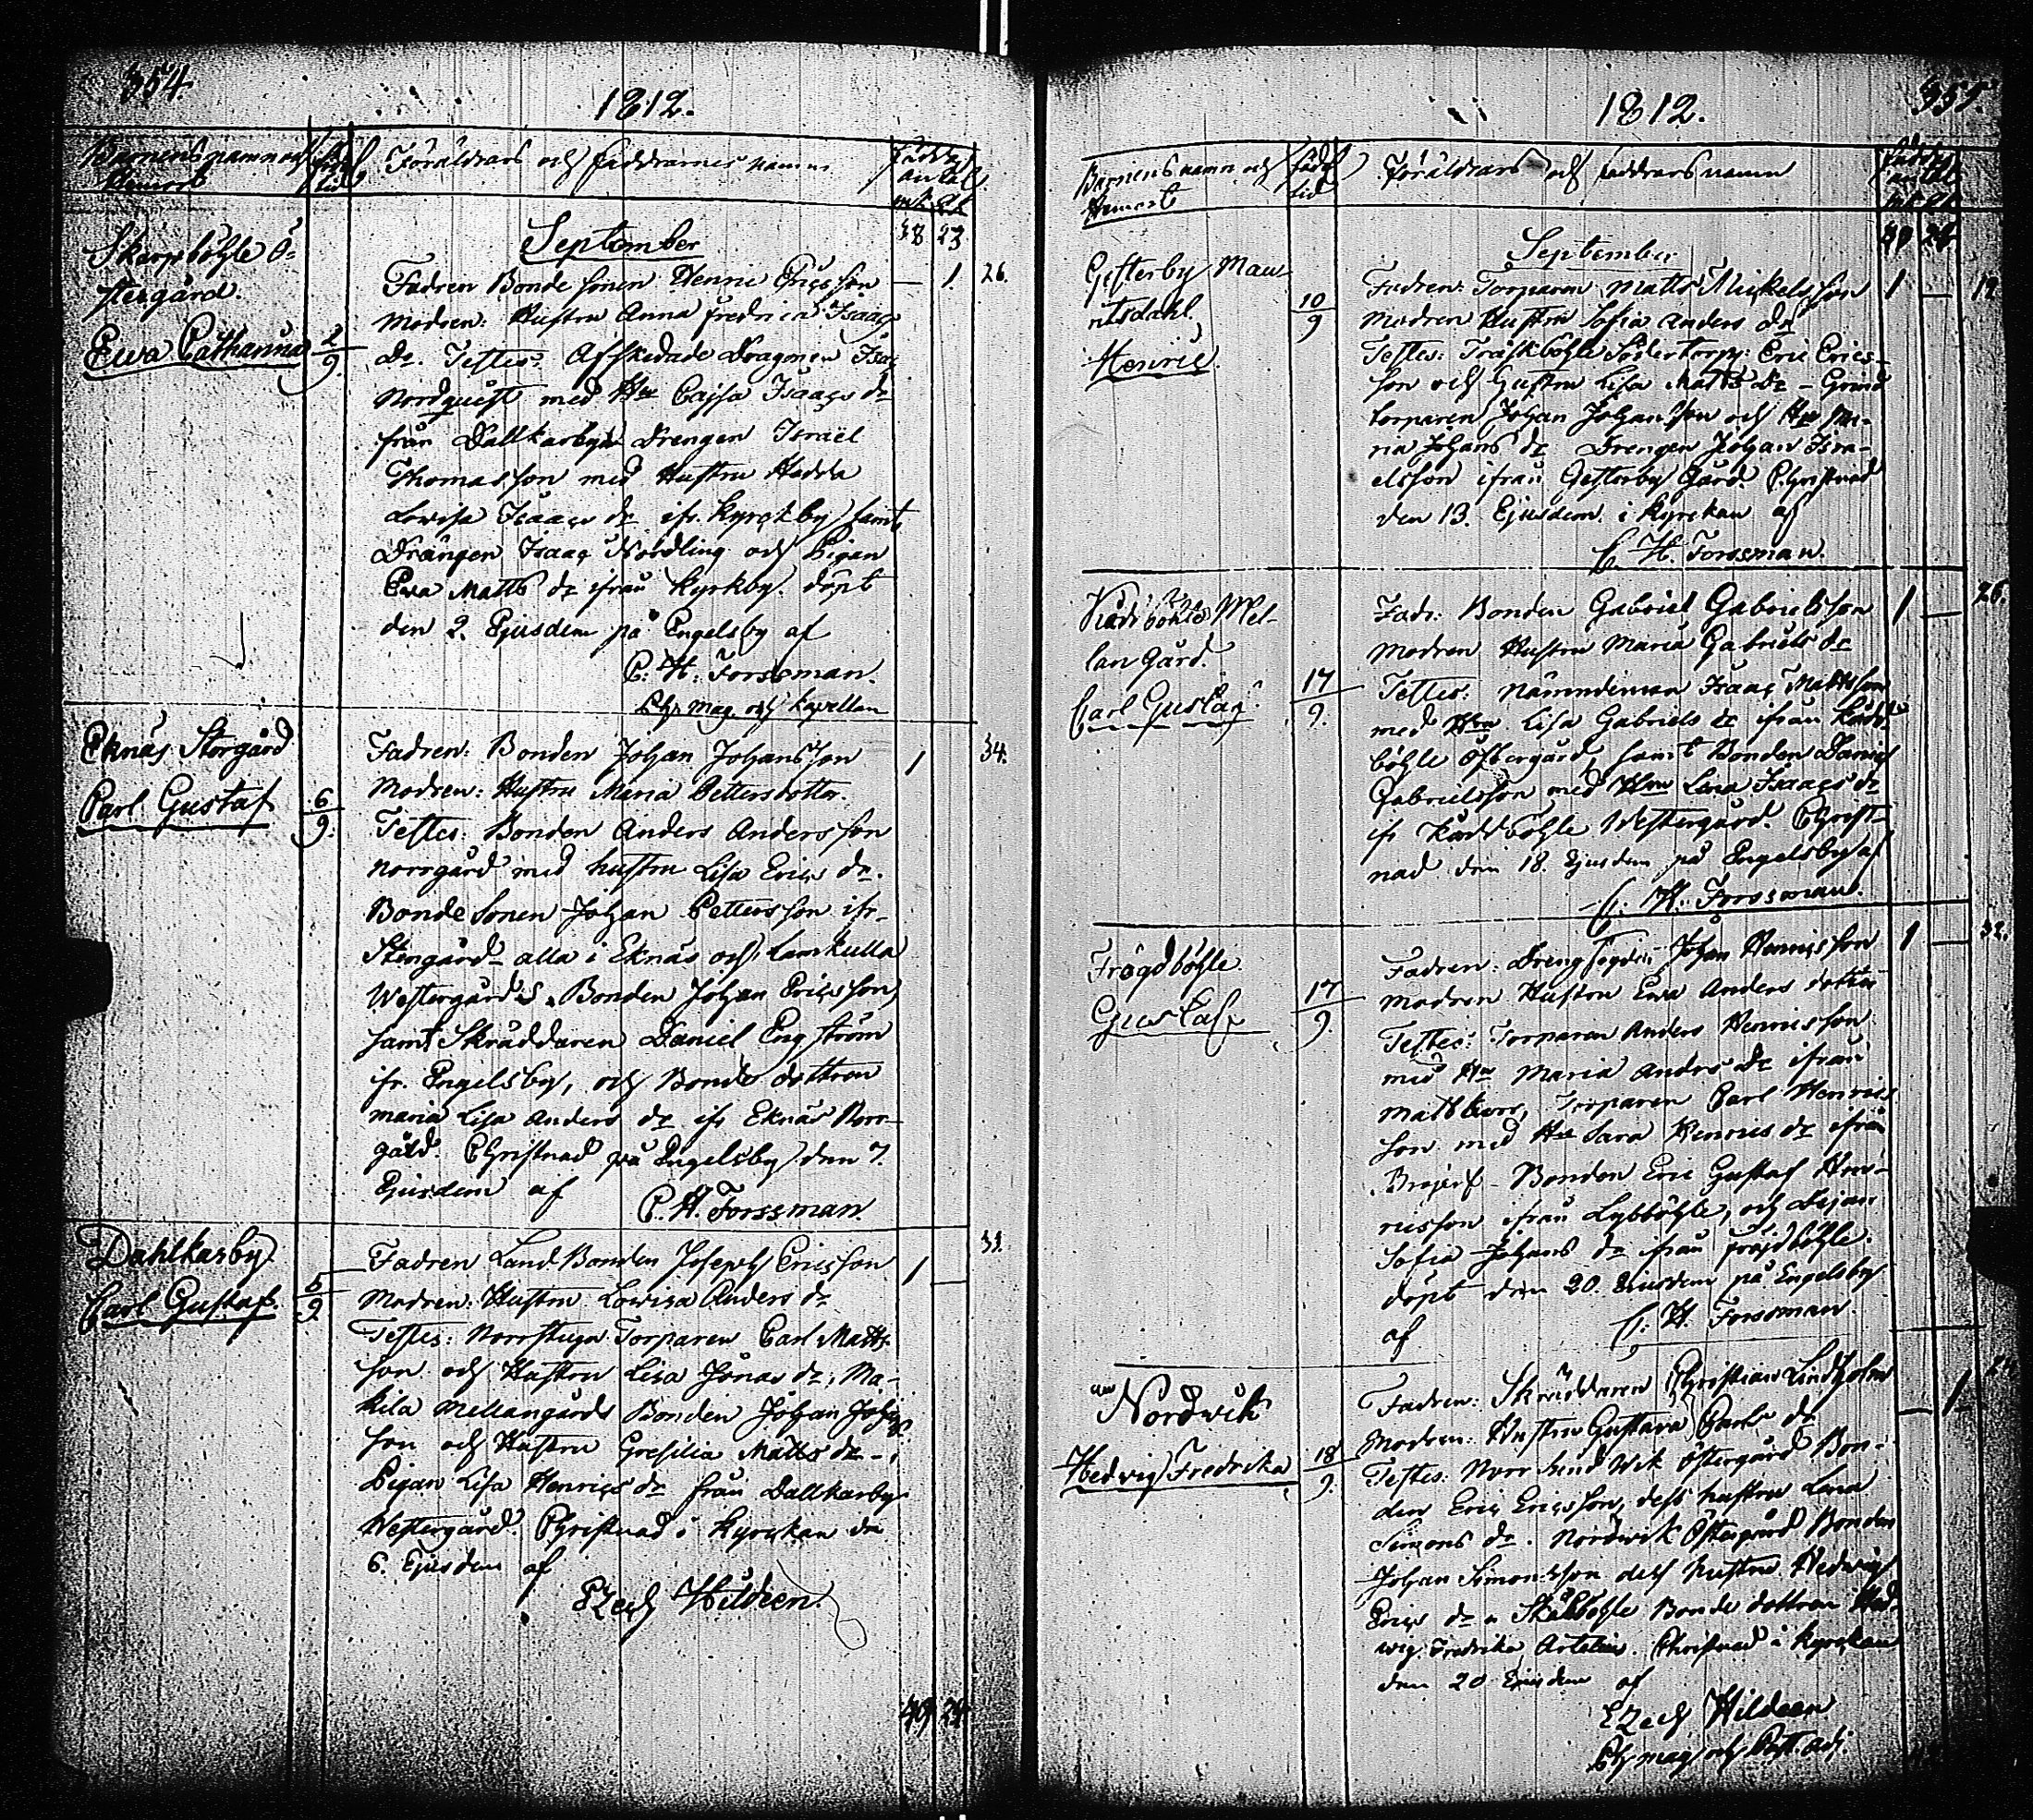 354
1812.
Barnens namn och
Hemort
Född
tid
Föräldrars och faddrarnes namn
födde
antal
mk. qk
September
38 23
Skarpböhle Ö-
stergård.
Ewa Catharina
2/9.
Fadren Bonde Sonen Henric Ericsson
Modren: Hustru Anna Fredrica Isaacs
Dr. Testes: Afskedade Dragonen Isac
Nordquist med Hu Cajsa Isaacs dr
från Dallkarby Drengen Israël
Thomasson med Hustru Hedda
Lovisa Isaacs dr ifr. Kyrckby samt
Drängen Isaac Nordling och Pigan
Ewa Matts dr ifrån Kyrkby. döpt
den 2. Ejusdem på Engelsby af
C. H. Forssman.
Ph. Mag. och Capellan
— 1. 26.
Eknäs Storgård
Carl Gustaf
6/9.
Fadren: Bonden Johan Johansson
Modren: Hustru Maria Pettersdotter.
Testes: Bonden Anders Andersson
Norrgård med hustru Lisa Erics dr.
Bonde Sonen Johan Pettersson ifr.
Stengård alla i Eknäs och Lamkulla
Westergårds Bonden Johan Ericsson
samt Skräddaren Daniel Engström
ifr. Engelsby, och Bonde dottren
Maria Lisa Anders dr ifr Eknäs Norr-
gård. Christnad på Engelsby den 7.
Ejusdem af
C. H. Forssman.
1 34.
Dahlkarby
Carl Gustaf.
5/9.
Fadren Land Bonden Joseph Ericsson
Modren: Hustru Lowisa Anders dr
Testes: Norrstuga Torparen Carl Matts-
son och Hustru Lisa Jonas dr, Ma-
kila Mellangårds Bonden Johan Johans
son och Hustru Gresilia Matts dr -,
Pigan Lisa Henrics dr från Dallkarby
Westergård. Christnad i Kyrckan den
6. Ejusdem af
Ezech Hildeen
1 —
40 24
355.
1812.
Barnens namn och
Hemort
född
tid
Föräldrars och faddrars namn
födde
antal
mk. qk
September
40 24
Gesterby Mau-
ritsdahl.
Henric
10/9
Fadren: Torparen Matts Mickelsson
Modren Hustru Sofia Anders dr
Testes: Träskböhle Södertorp: Eric Erics-
son och Hustru Lisa Matts dr - Grind
torparen Johan Johansson och Hu Ma-
ria Johans dr Drengen Johan Isra-
elsson ifrån Gesterby Gård. Christnad
den 13. Ejusdem i Kyrckan af
C. H. Forssman.
1 — 19
Kådböhle Mel-
lan Gård.
Carl Gustaf
17/9.
Fadr: Bonden Gabriel Gabrielsson
Modren Hustru Maria Gabriels dr
Testes: Nämndeman Isaac Mattsson
med Hu Lisa Gabriels dr ifrån Kådd
böhle Östergård, samt Bonden Daniel
Gabrielsson med Hu Lena Isaacs dr
ifr Kåddböhle Westergård. Christ-
nad den 18. Ejusdem på Engelsby af
C. H. Forssman.
1 — 26.
Frögdböhle.
Gustaf
17/9.
Fadren: Johan Henricsson
Modren Hustru Ewa Anders dotter
Testes: Torparen Anders Henricsson
med Hu Maria Anders dr ifrån
Mattkurr, Torparen Carl Henrics
son med Hu Sara Henrics dr ifrån
Bonden Eric Gustaf Hen-
ricsson ifrån Lybböhle, och Pigan
Sofia Johans dr ifrån Fröjdböhle.
döpt den 20. Ejusdem på Engelsby
af
C. H. Forssman
1 — 32.
Nordwik
Hedwig Fredrika
18/9.
Fadren: Skräddaren Christian Lindholm
Modren: Hustru Gustava Carls dr
Testes: Norr Sundwik Östergård Bon-
den Eric Ericsson, dess hustru Lena
Simons dr. Nordwik Östergård Bonden
Johan Simonsson dess hustru Hedwig
Erics dr, Skålböhle Bonde dottren Hed-
wig Fredrika Christnad i Kyrckan
den 20 Ejusdem af
Ezech Hildeen
Ph: mag och Past. adj.
— 1